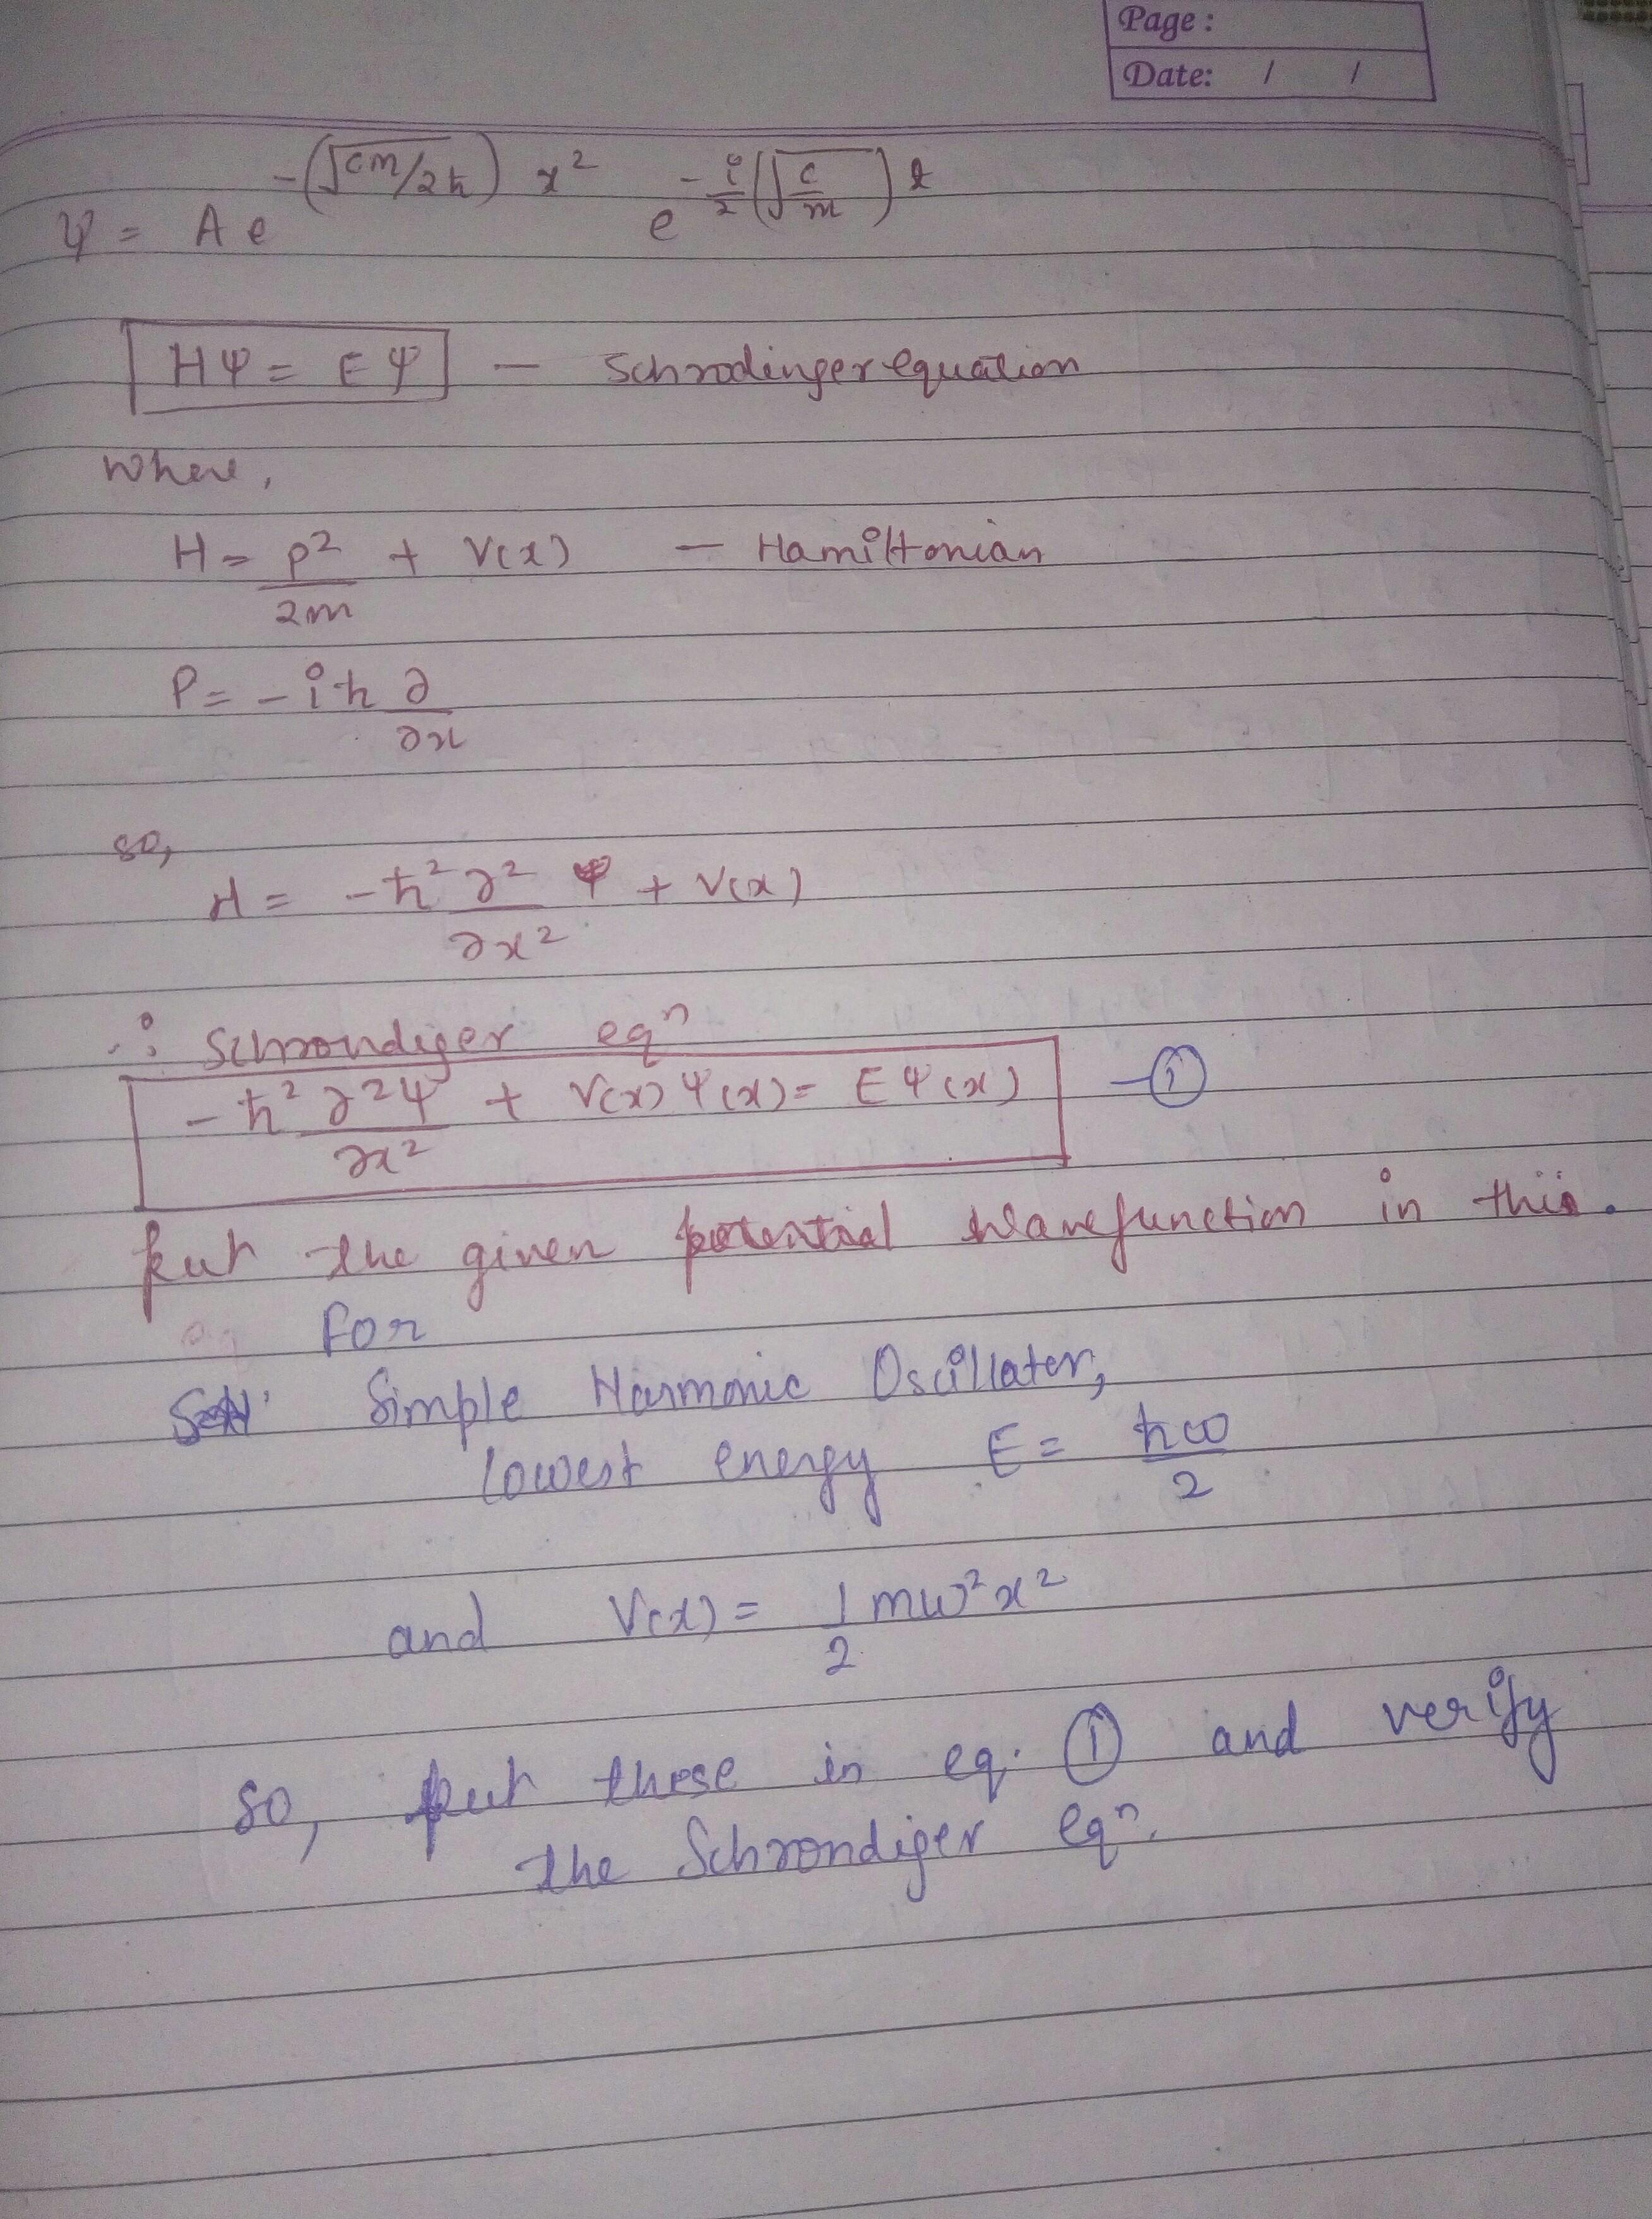 Page :
Date: / /
ψ = A e^{-(√cm/2ħ) x²} e^{-i/2 (√c/m) t}
Hψ = Eψ — Schrodinger equation
where,
H = p²/2m + V(x) — Hamiltonian
P = -iħ ∂/∂x
so,
H = -ħ² ∂²/∂x² ψ + V(x)
∴ Schrondiger eqⁿ
-ħ² ∂²ψ/∂x² + V(x) ψ(x) = E ψ(x) — ①
put the given potential wavefunction in this.
for
Simple Harmonic Oscillater,
lowest energy E = ħω/2
and V(x) = 1/2 mω²x²
so, put these in eq. ① and verify
the Schrondiger eqⁿ.